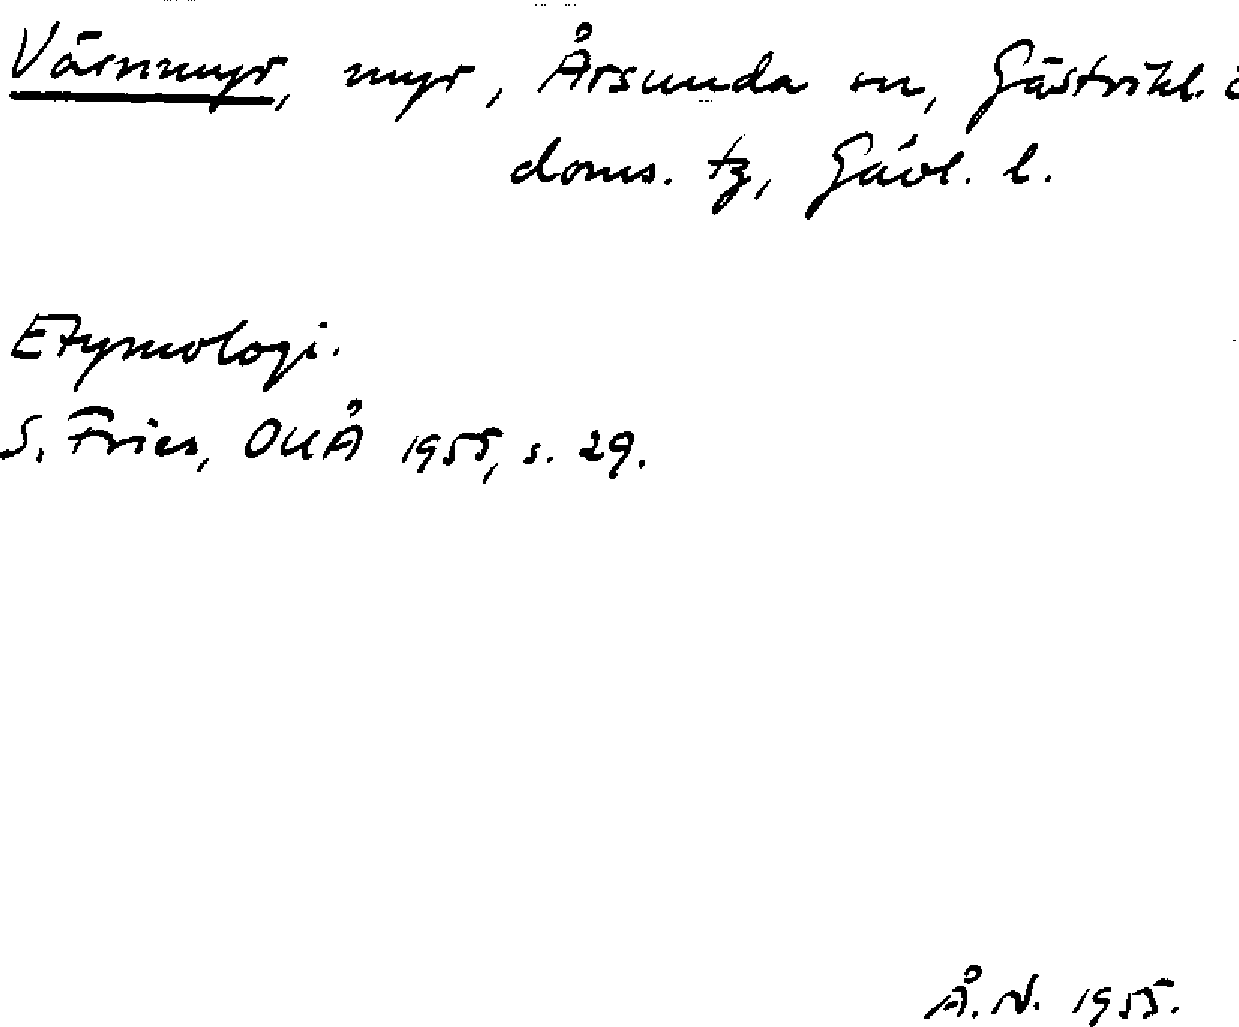 Värnmyr, myr, Årsunda sn, Gästrikl. ö
doms. tg, Gävl. l.
Etymologi.
S. Fries, OUÅ 1955, s. 29.
Å. N. 1955.